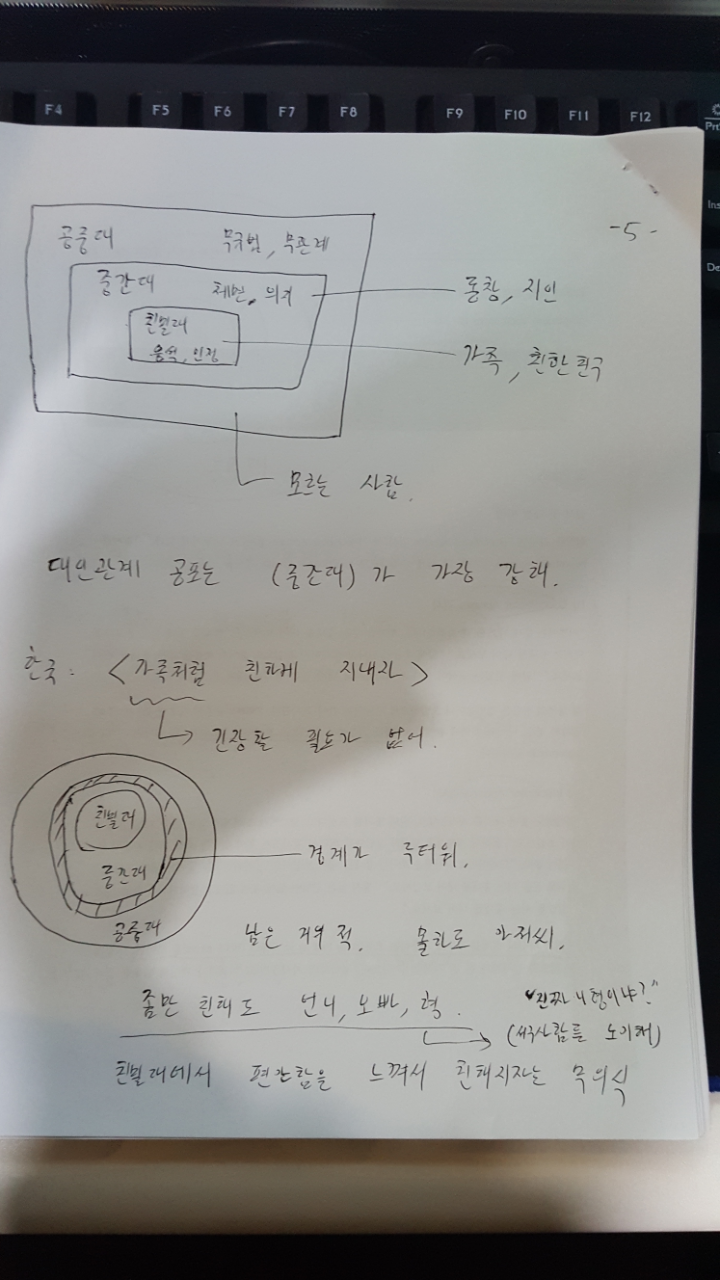 F4 F5 F6 F7 F8 F9 F10 F11 F12
Ins
De
-5-
공중대 무규범, 무관계
중간대 체면, 의리
친밀대
응석, 인정
동창, 지인
가족, 친한 친구
모르는 사람.
대인관계 공포는 (중간대)가 가장 강해.
한국: <가족처럼 친하게 지내자>
긴장할 필요가 없어.
친밀대
중간대
공중대
경계가 두터워.
남은 거의 적. 몰라도 아저씨.
좀만 친해도 언니, 오빠, 형. "진짜 니 형이냐?"
(서구사람들 노이해)
친밀대에서 편안함을 느껴서 친해지자는 무의식